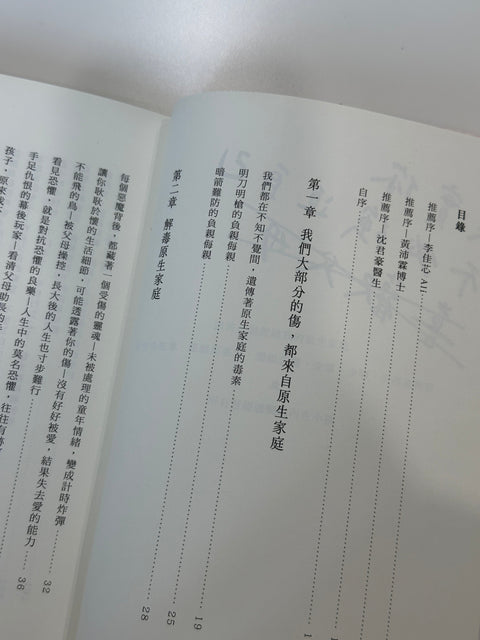 目錄
推薦序—李佳芯 Ali
推薦序—黃沛霖博士
推薦序—沈君豪醫生
自序
第一章 我們大部分的傷，都來自原生家庭
我們都在不知不覺間，遺傳著原生家庭的毒素
明刀明槍的負親侮親 19
暗箭難防的負親侮親 25
第二章 解毒原生家庭 28
每個惡魔背後，都藏著一個受傷的靈魂—未被處理的童年情緒，變成計時炸彈
讓你耿耿於懷的生活細節，可能透露著你的傷—沒有好好被愛，結果失去愛的能力 32
不能飛的鳥—被父母操控，長大後的人生也寸步難行 36
看見恐懼，就是對抗恐懼的良藥—人生中的莫名恐懼，往往有跡
手足仇恨的幕後玩家—看清父母助長的手
孩子，原來我